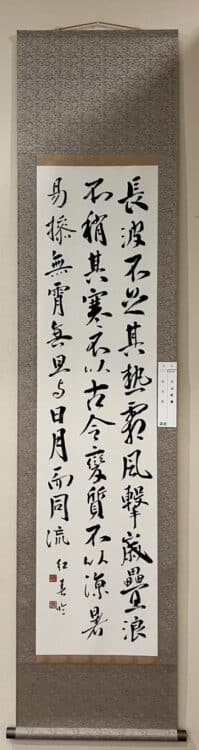 長波不其熱霜風擊疊浪
不稍其寒不以古今變質不以涼暑
易操無霄無旦与日月而同流 紅